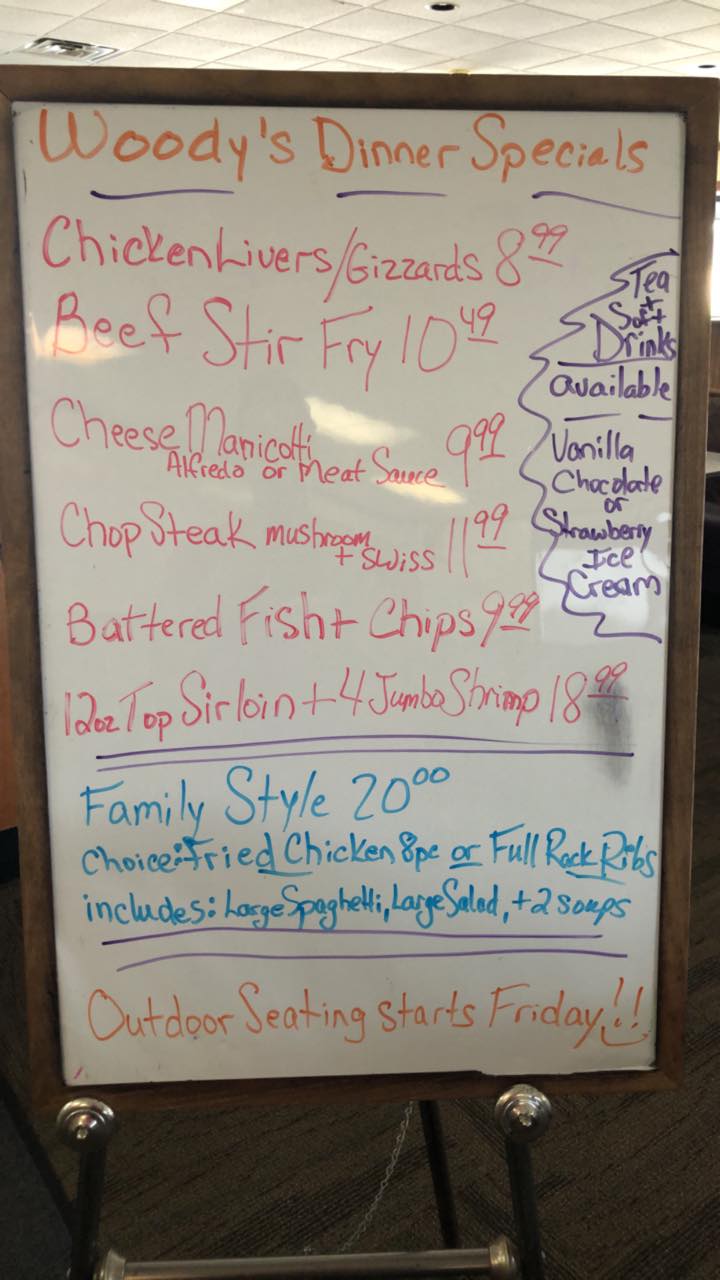 Woody's Dinner Specials
Chicken Livers/Gizzards 8 99
Beef Stir Fry 10 49
Cheese Manicotti 9 99
Alfredo or Meat Sauce
Chop Steak mushroom 11 99
+ Swiss
Battered Fish + Chips 9 99
12oz Top Sirloin + 4 Jumbo Shrimp 18 99
Tea
+
Soft
Drinks
available
Vanilla
Chocolate
or
Strawberry
Ice
Cream
Family Style 20 00
Choice: Fried Chicken 8pc or Full Rack Ribs
includes: Large Spaghetti, Large Salad, + 2 soups
Outdoor Seating starts Friday!!